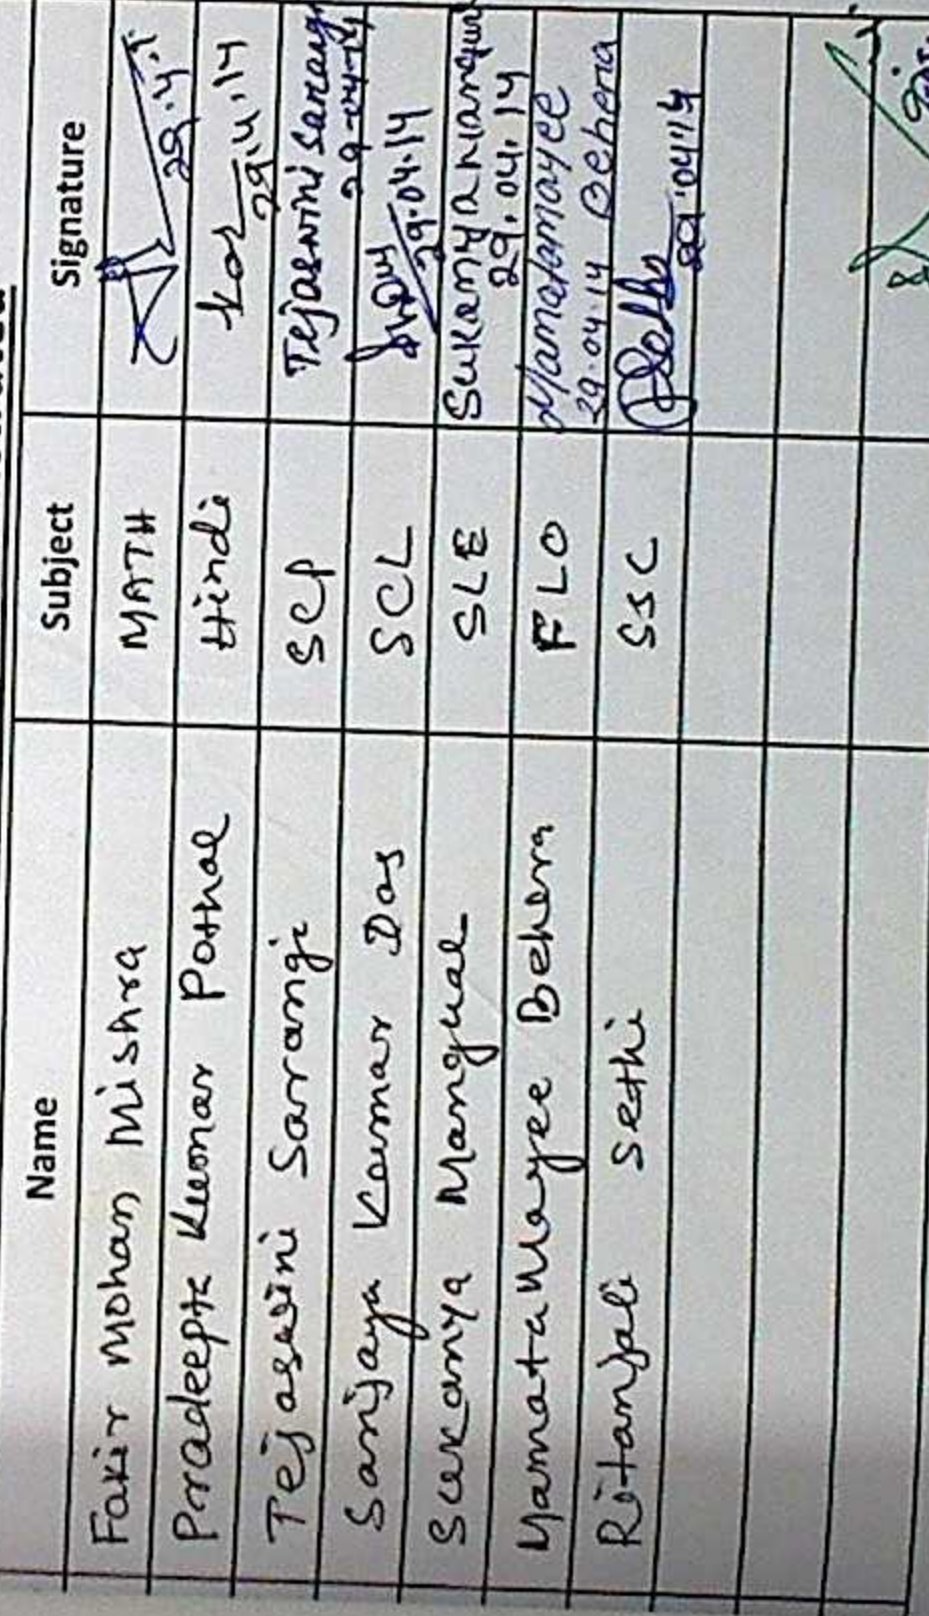 Name Subject Signature
Fakir Mohan Mishra MATH 29.4.1
Pradeepta Kumar Pothal Hindi 29.4.14
Tejaswini Sarangi SCP Tejaswini Sarang
29-04-14
Sanjaya Kumar Das SCL 29.04.14
Sukanya Mangual SLE Sukanya
29.04.14
Mamatamayee Behera FLO Mamatamayee
29.04.14 Behera
Ritanjali Sethi SSC RSethi
29.04.14